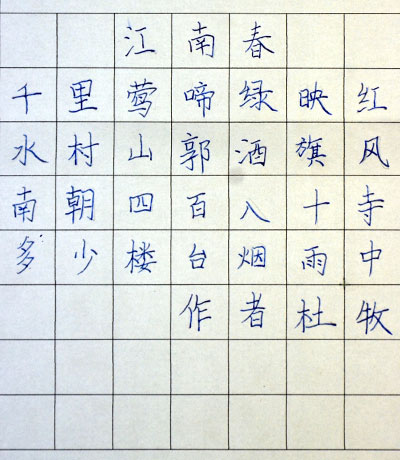 江南春
千里莺啼绿映红
水村山郭酒旗风
南朝四百八十寺
多少楼台烟雨中
作者杜牧